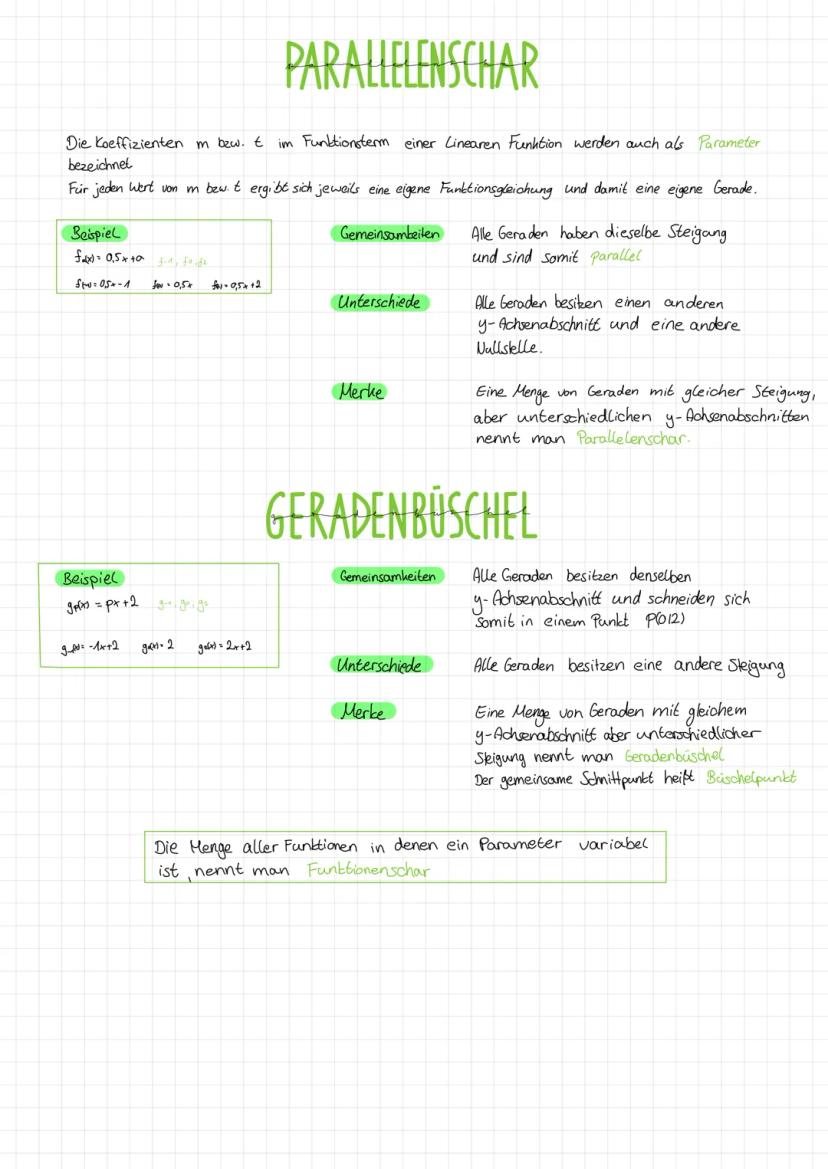 PARALLELENSCHAR
Die Koeffizienten m bzw. t im Funktionsterm einer Linearen Funktion werden auch als Parameter
bezeichnet
Für jeden Wert von m bzw. t ergibt sich jeweils eine eigene Funktionsgleichung und damit eine eigene Gerade.
Beispiel
fa(x) = 0,5x+a f-1, f0, f2
f(-1) = 0,5x-1 f(0) = 0,5x f(2) = 0,5x+2
Gemeinsamkeiten
Alle Geraden haben dieselbe Steigung
und sind somit parallel
Unterschiede
Alle Geraden besitzen einen anderen
y-Achsenabschnitt und eine andere
Nullstelle.
Merke
Eine Menge von Geraden mit gleicher Steigung,
aber unterschiedlichen y-Achsenabschnitten
nennt man Parallelenschar.
GERADENBÜSCHEL
Beispiel
gp(x) = px+2 g-1, g0, g2
g-1(x) = -1x+2 g0(x) = 2 g2(x) = 2x+2
Gemeinsamkeiten
Alle Geraden besitzen denselben
y-Achsenabschnitt und schneiden sich
somit in einem Punkt P(0|2)
Unterschiede
Alle Geraden besitzen eine andere Steigung
Merke
Eine Menge von Geraden mit gleichem
y-Achsenabschnitt aber unterschiedlicher
Steigung nennt man Geradenbüschel
Der gemeinsame Schnittpunkt heißt Büschelpunkt
Die Menge aller Funktionen in denen ein Parameter variabel
ist, nennt man Funktionenschar